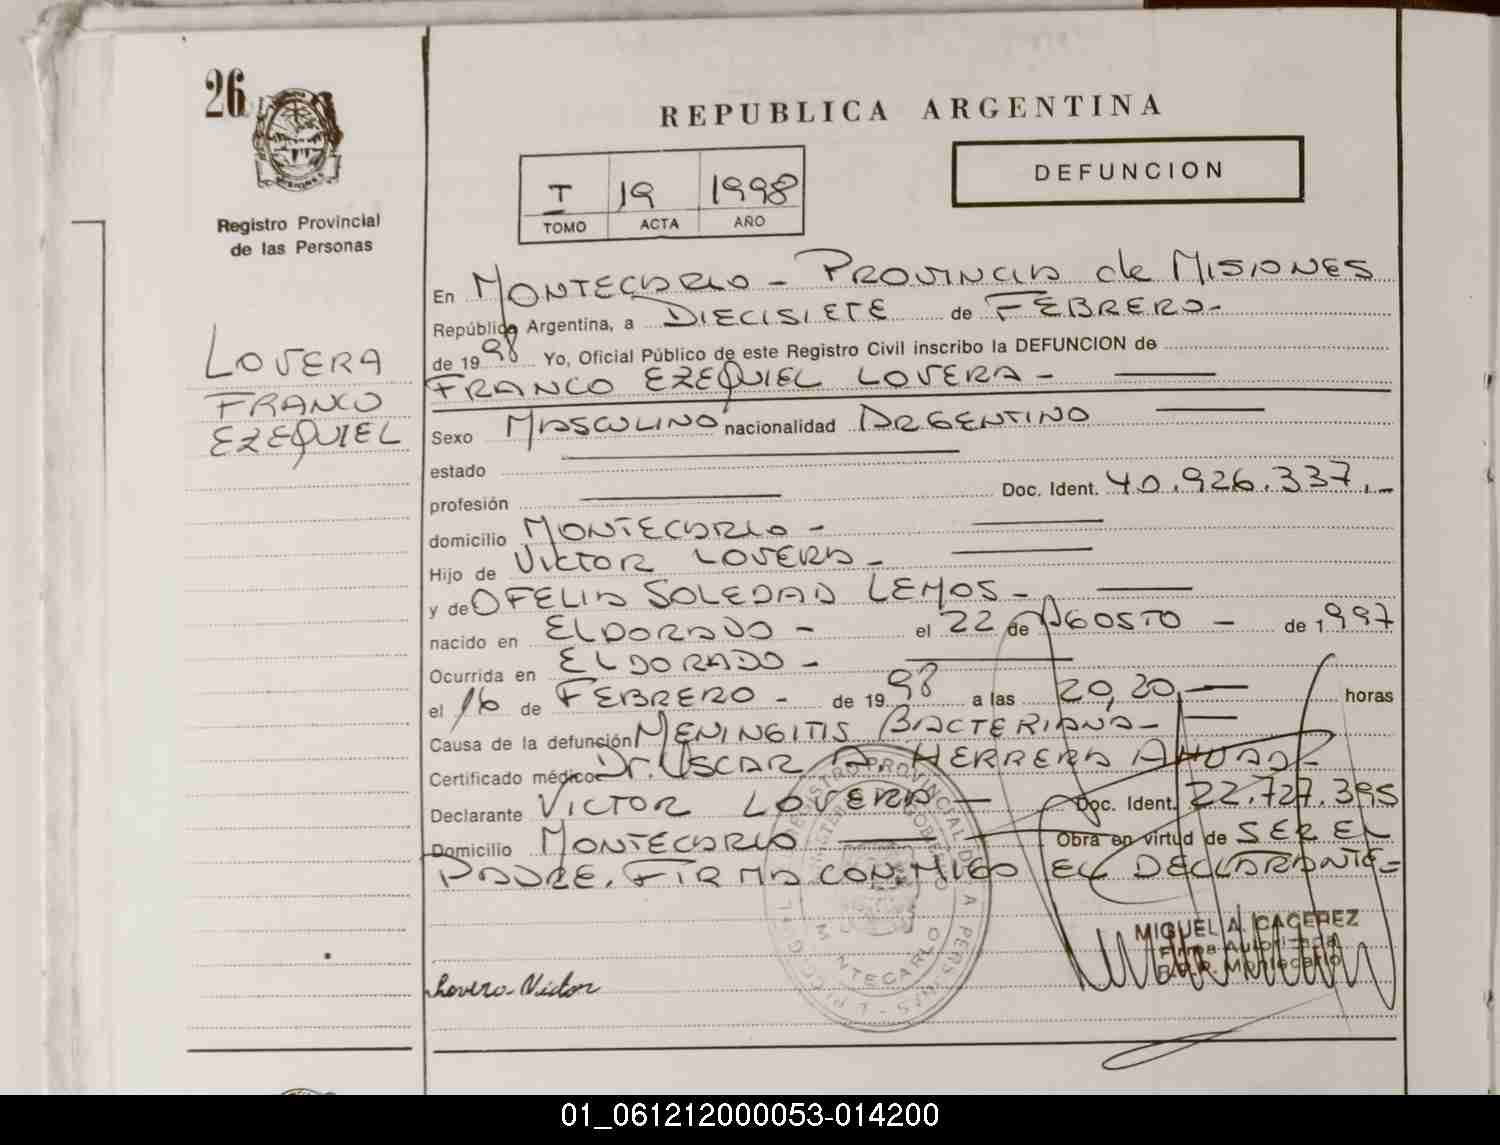 26
REPUBLICA ARGENTINA
DEFUNCION
I 19 1998
TOMO ACTA AÑO
Registro Provincial
de las Personas
LOVERA
FRANCO
EZEQUIEL
En MONTECARLO - PROVINCIA de MISIONES
República Argentina, a DIECISIETE de FEBRERO-
de 1998 Yo, Oficial Público de este Registro Civil inscribo la DEFUNCION de
FRANCO EZEQUIEL LOVERA -
Sexo MASCULINO nacionalidad ARGENTINO
estado
profesión Doc. Ident. 40.926.337.-
domicilio MONTECARLO -
Hijo de VICTOR LOVERA -
y de OFELIA SOLEDAD LEMOS -
nacido en ELDORADO - el 22 de AGOSTO - de 1.997
Ocurrida en ELDORADO -
el 16 de FEBRERO - de 1998 a las 20,20 horas
Causa de la defunción MENINGITIS BACTERIANA -
Certificado médico Dr. OSCAR A. HERRERA AHUAD
Declarante VICTOR LOVERA - Doc. Ident. 22.727.395
Domicilio MONTECARLO Obra en virtud de SER EL
PADRE. FIRMA CONMIGO EL DECLARANTE=
MIGUEL A. CACEREZ
Firma Autorizada
R.P.P. Montecarlo
Lovera Victor
REGISTRO PROVINCIAL DE LAS PERSONAS
MINISTERIO DE GOBIERNO
MONTECARLO
01_061212000053-014200